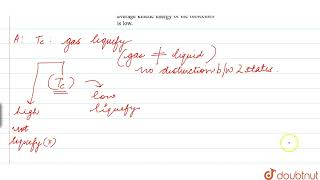 average kinetic energy of the molecules
is low.
A: Tc. gas liquefy
(gas ≠ liquid)
no distinction b/w 2 states.
(Tc)
high
low
not
liquefy
liquefy (x)
doubtnut